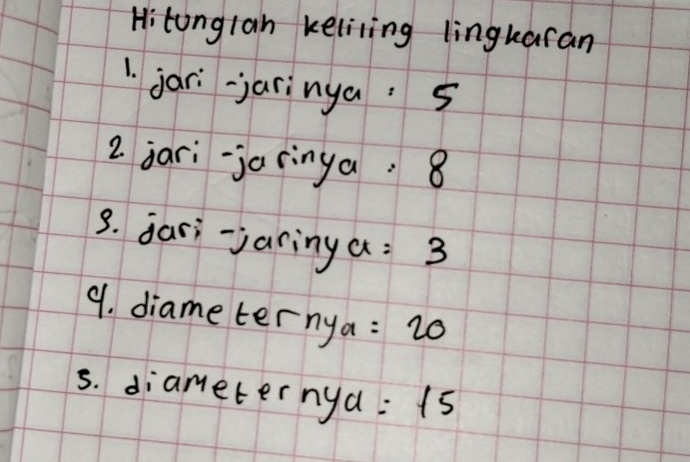 Hitunglah keliling lingkaran
1. jari-jarinya : 5
2. jari-jarinya : 8
3. jari-jarinya = 3
4. diameternya = 20
5. diameternya = 15